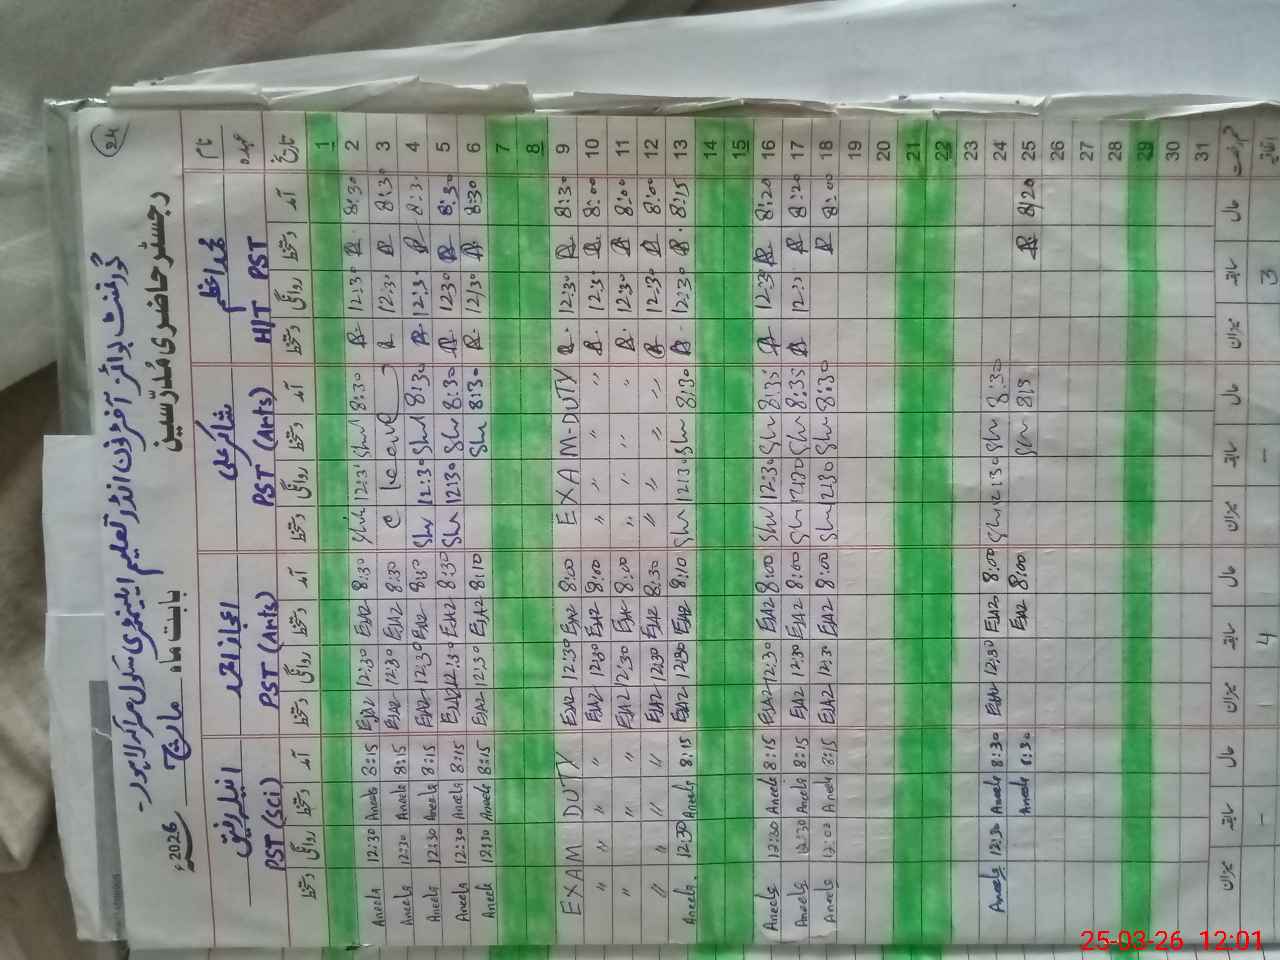 24
گورنمنٹ بوائز آفٹرنون اندر تعلیم ایلیمنٹری سکول سرائے لاہور۔
رجسٹر حاضری مدرسین
بابت ماہ مارچ 2026ء
نام محمد اعظم شاکر علی اعجاز احمد انیلہ رفیق
عہدہ H/T PST PST (Arts) PST (Arts) PST (Sci)
تاریخ آمد دستخط روانگی دستخط آمد دستخط روانگی دستخط آمد دستخط روانگی دستخط آمد دستخط روانگی دستخط
1
2 8:30 12:30 8:30 Shu 12:31 Shu 8:30 EJAZ 12:30 EJAZ 8:15 Aneela 12:30 Aneela
3 8:30 12:30 Leave 8:30 EJAZ 12:30 EJAZ 8:15 Aneela 12:30 Aneela
4 8:30 12:30 8:30 Shu 12:30 Shu 8:30 EJAZ 12:30 EJAZ 8:15 Aneela 12:30 Aneela
5 8:30 12:30 8:30 Shu 12:30 Shu 8:30 EJAZ 12:30 EJAZ 8:15 Aneela 12:30 Aneela
6 8:30 12:30 8:30 Shu 8:10 EJAZ 12:30 EJAZ 8:15 Aneela 12:30 Aneela
7
8
9 8:30 12:30 EXAM-DUTY 8:00 EJAZ 12:30 EJAZ EXAM DUTY
10 8:00 12:30 〃 〃 〃 〃 8:00 EJAZ 12:30 EJAZ 〃 〃 〃 〃
11 8:00 12:30 〃 〃 〃 〃 8:00 EJAZ 12:30 EJAZ 〃 〃 〃 〃
12 8:00 12:30 〃 〃 〃 〃 8:30 EJAZ 12:30 EJAZ 〃 〃 〃 〃
13 8:15 12:30 8:30 Shu 12:30 Shu 8:10 EJAZ 12:30 EJAZ 8:15 Aneela 12:30 Aneela
14
15
16 8:20 12:30 8:35 Shu 12:30 Shu 8:00 EJAZ 12:30 EJAZ 8:15 Aneela 12:30 Aneela
17 8:20 8:35 Shu 12:30 Shu 8:00 EJAZ 12:30 EJAZ 8:15 Aneela 12:30 Aneela
18 8:00 8:30 Shu 12:30 Shu 8:00 EJAZ 12:30 EJAZ 8:15 Aneela 12:02 Aneela
19
20
21
22
23
24 8:30 Shu 12:30 Shu 8:00 EJAZ 12:30 EJAZ 8:30 Aneela 12:30 Aneela
25 8:20 8:15 Shu 8:00 EJAZ 8:30 Aneela
26
27
28
29
30
31
حال سابقہ میزان حال سابقہ میزان حال سابقہ میزان حال سابقہ میزان
اتفاقیہ 3 - 4 -
25-03-26 12:01